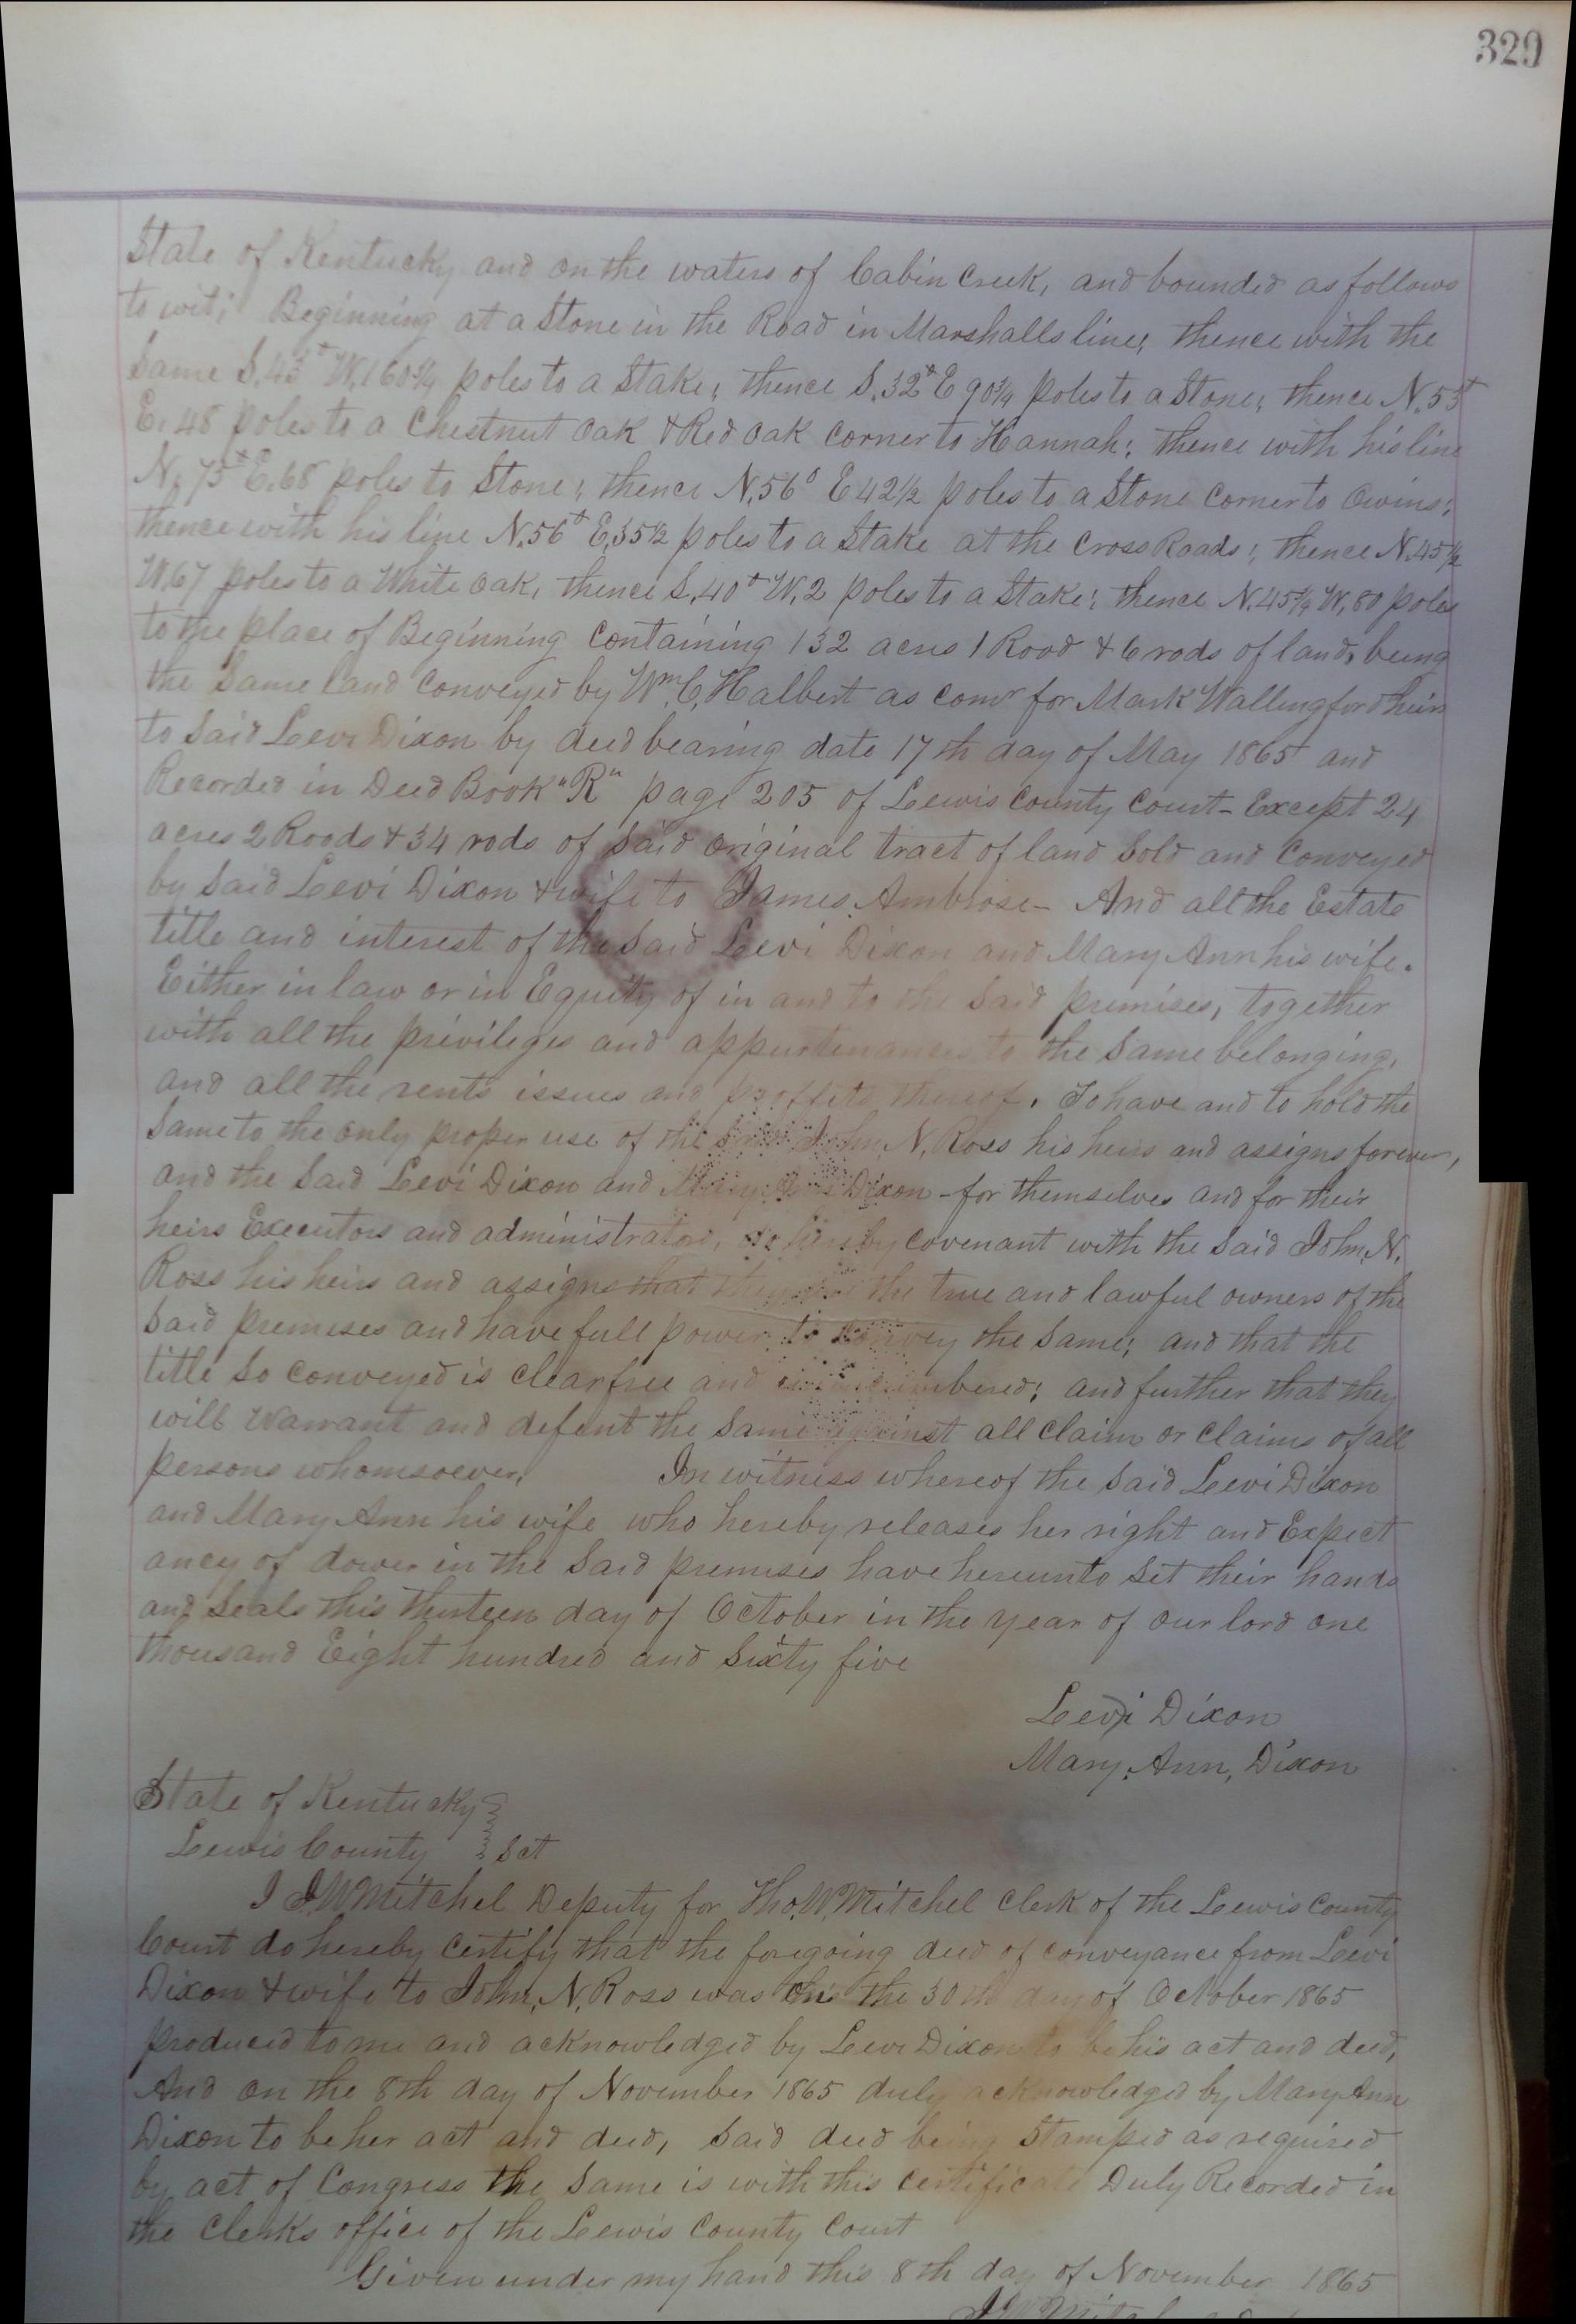 329
State of Kentucky and on the waters of Cabin Creek, and bounded as follows
to wit; Beginning at a Stone in the Road in Marshalls line; thence with the
Same S. 43° W. 160¾ poles to a Stake; thence S. 32° E 90¾ poles to a Stone; thence N. 55°
E. 48 poles to a Chestnut Oak & Red Oak Corner to Hannah; thence with his line
N. 75° E. 68 poles to Stone; thence N. 56° E 42½ poles to a Stone Corner to Owins;
thence with his line N. 56° E. 35½ poles to a Stake at the Cross Roads; thence N. 45½
W. 67 poles to a White Oak, thence S. 40° W. 2 poles to a Stake; thence N. 45¾ W, 80 poles
to the place of Beginning Containing 132 acres 1 Rood & 6 rods of land, being
the Same land Conveyed by Wm. C. Halbert as comr for Mark Wallingford heirs
to Said Levi Dixon by deed bearing date 17th day of May 1865 and
Recorded in Deed Book "R" page 205 of Lewis County Court - Except 24
acres 2 Roods & 34 rods of Said original tract of land Sold and Conveyed
by Said Levi Dixon & wife to James Ambrose - And all the Estate
title and interest of the Said Levi Dixon and Mary Ann his wife.
Either in law or in Equity of in and to the Said premises, together
with all the privileges and appurtenances to the Same belonging,
and all the rents issues and proffits thereof. To have and to hold the
Same to the only proper use of the Said John, N, Ross his heirs and assigns forever,
and the Said Levi Dixon and Mary Ann Dixon - for themselves and for their
heirs Executors and administrators, do hereby Covenant with the Said John, N.
Ross his heirs and assigns that they are the true and lawful owners of the
Said premises and have full power to convey the Same; and that the
title So Conveyed is Clear free and unincumbered; and further that they
will Warrant and defent the Same against all Claim or Claims of all
persons whomsoever. In witness whereof the Said Levi Dixon
and Mary Ann his wife who hereby releases her right and Expect
ancy of dower in the Said premises have hereunto Set their hands
and Seals this thirteen day of October in the year of our lord one
thousand Eight hundred and Sixty five
Levi Dixon
Mary, Ann, Dixon
State of Kentucky
Lewis County Sct
I J. W. Mitchel Deputy for Tho. W. Mitchel Clerk of the Lewis County
Court do hereby Certify that the foregoing deed of Conveyance from Levi
Dixon & wife to John, N, Ross was the 30th day of October 1865
produced to me and acknowledged by Levi Dixon to be his act and deed,
And on the 8th day of November 1865 duly acknowledged by Mary Ann
Dixon to be her act and deed, Said deed being Stamped as required
by act of Congress the Same is with this Certificate Duly Recorded in
the Clerks office of the Lewis County Court
Given under my hand this 8th day of November 1865